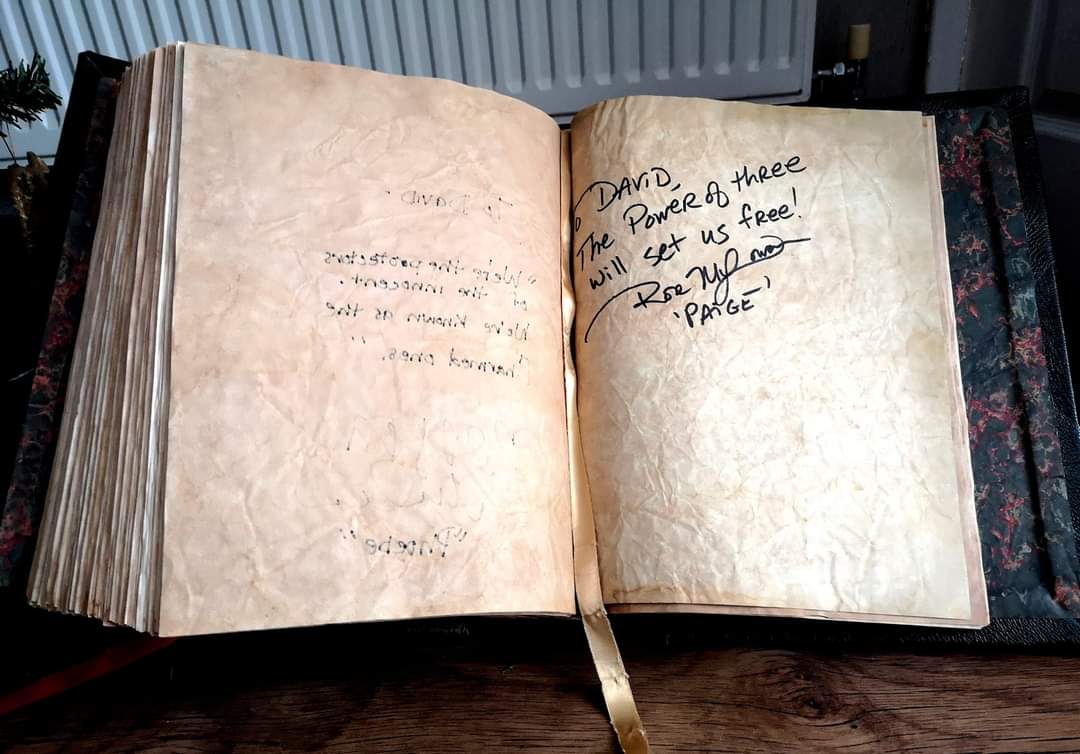 To DAViD
"We're the protectors
of the innocent.
We're known as the
Charmed ones."
"Phoebe"
To DAViD,
The Power of three
will set us free!
Rose McGowan
'PAiGE'